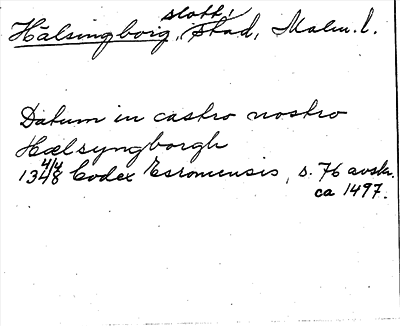 Hälsingborg, slott, stad, Malm. l.
Datum in castro nostro
Hælsyngborgh
13 4/4 48 Codex Esromensis, s. 76 avskr.
ca 1497.